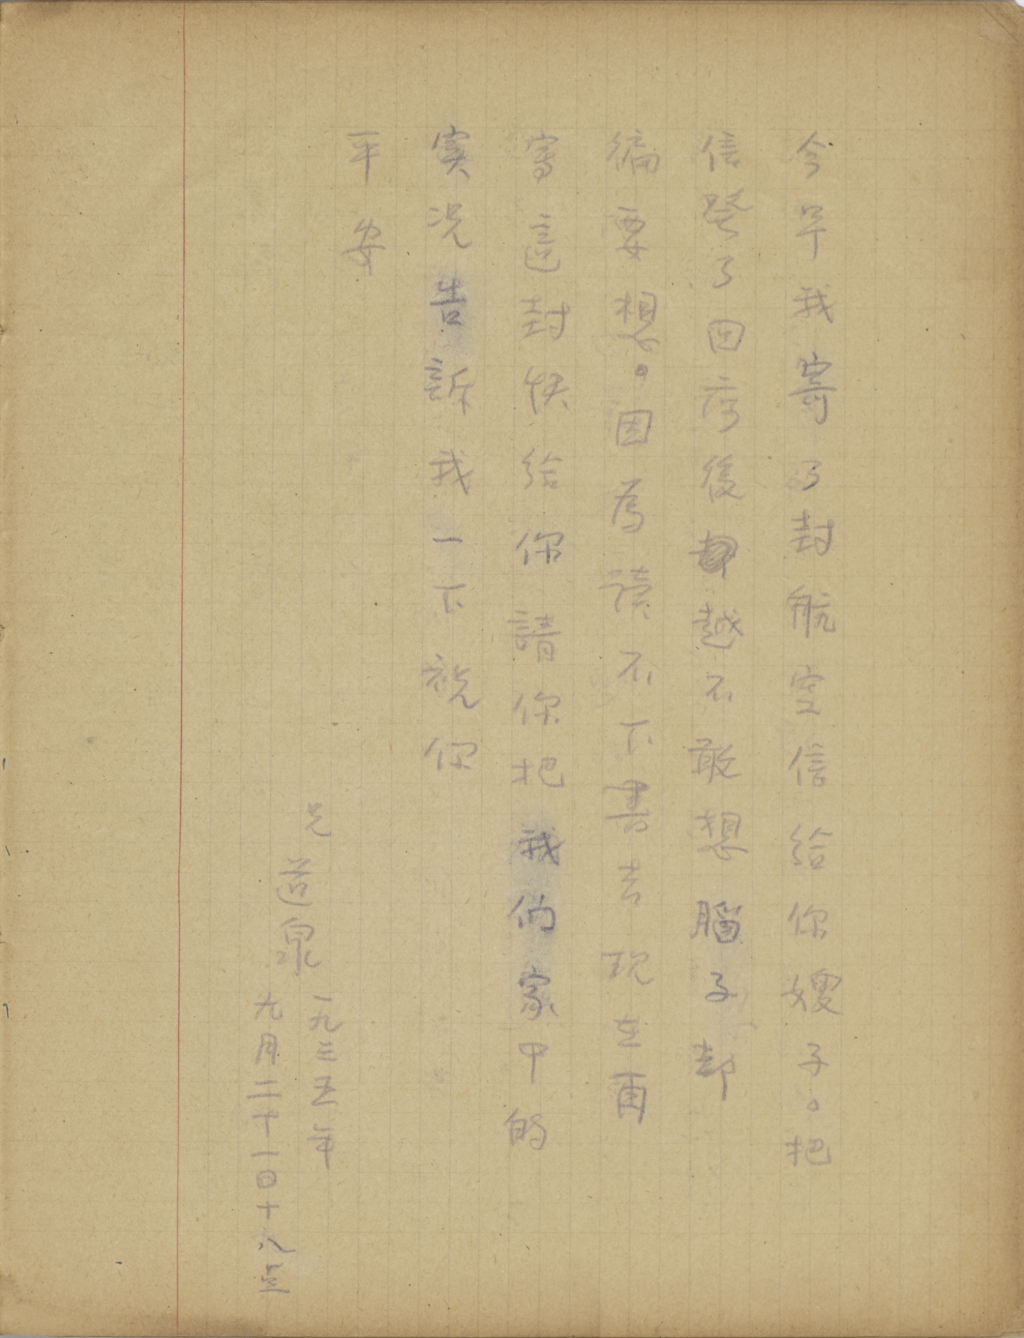 今早我寄了封航空信给你嫂子。把
信發了回店後越不敢想腦子却
偏要想。因為讀不下書去現在再
寫這封快给你請你把我们家中的
实况告訴我一下祝你
平安
兄
道泉
一九三五年
九月二十一日十八点